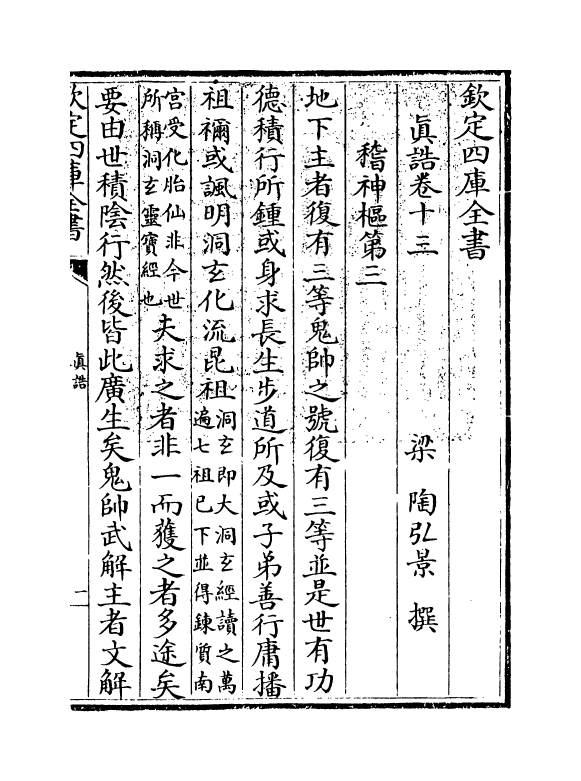 欽定四庫全書
眞誥卷十三
梁 陶弘景 撰
稽神樞第三
地下主者復有三等鬼帥之號復有三等並是世有功
德積行所鍾或身求長生步道所及或子弟善行庸播
祖禰或諷明洞玄化流昆祖洞玄即大洞玄經讀之萬
遍七祖已下並得鍊質南
宮受化胎仙非今世
所稱洞玄靈寶經也夫求之者非一而獲之者多途矣
要由世積陰行然後皆此廣生矣鬼帥武解主者文解
欽定四庫全書
眞誥
二